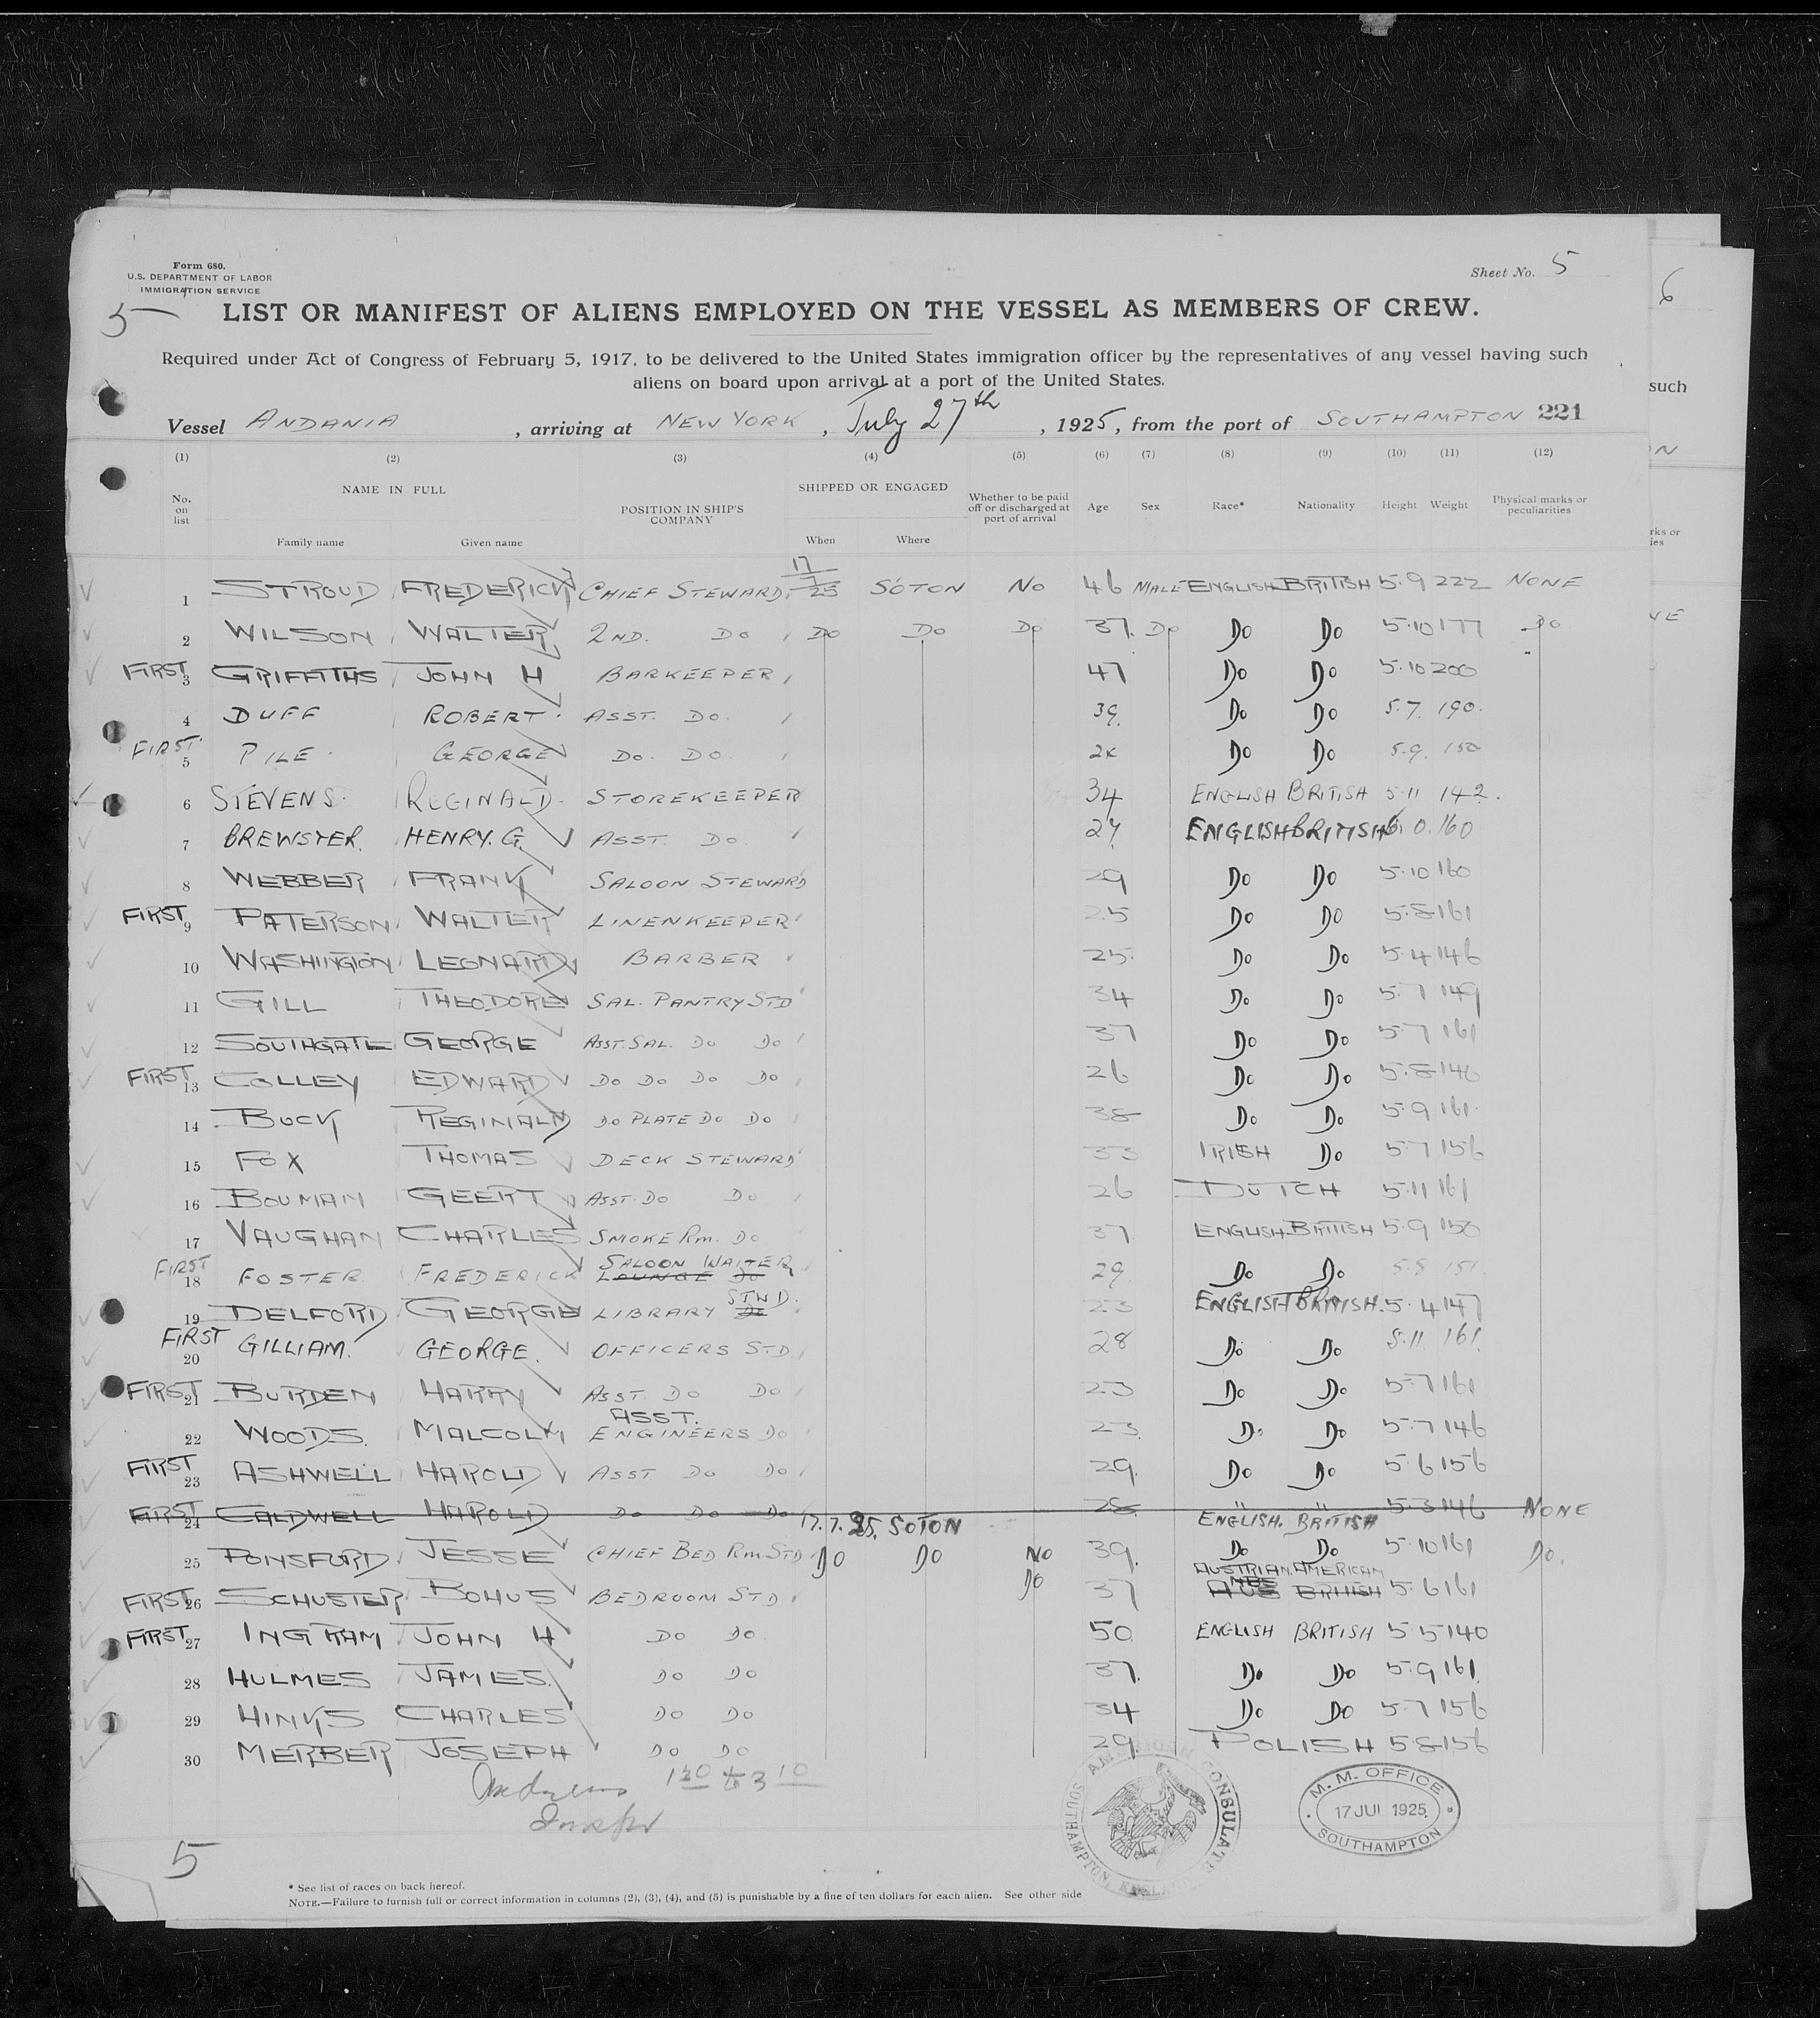 Form 680.
U.S. DEPARTMENT OF LABOR
IMMIGRATION SERVICE
Sheet No. 5
6
5
LIST OR MANIFEST OF ALIENS EMPLOYED ON THE VESSEL AS MEMBERS OF CREW.
Required under Act of Congress of February 5, 1917, to be delivered to the United States immigration officer by the representatives of any vessel having such
aliens on board upon arrival at a port of the United States.
such
Vessel ANDANIA, arriving at NEW YORK, July 27th, 1925, from the port of SOUTHAMPTON 221
(1) (2) (3) (4) (5) (6) (7) (8) (9) (10) (11) (12)
No. on list NAME IN FULL POSITION IN SHIP'S COMPANY SHIPPED OR ENGAGED Whether to be paid off or discharged at port of arrival Age Sex Race* Nationality Height Weight Physical marks or peculiarities
Family name Given name When Where
1 STROUD FREDERICK CHIEF STEWARD 17/7/25 SOTON NO 46 MALE ENGLISH BRITISH 5.9 222 NONE
2 WILSON WALTER 2ND. DO DO DO DO 37. DO DO DO 5.10 177 DO.
FIRST 3 GRIFFITHS JOHN H BARKEEPER 47 DO DO 5.10 200
4 DUFF ROBERT. ASST. DO. 39. DO DO 5.7. 190.
FIRST 5 PILE GEORGE DO. DO. DO DO 5.9. 150
6 STEVENS. REGINALD. STOREKEEPER 34 ENGLISH BRITISH 5.11 142.
7 BREWSTER. HENRY. G. ASST. DO. 27. ENGLISH BRITISH 6.0. 160
8 WEBBER FRANK SALOON STEWARD 29 DO DO 5.10 160
FIRST 9 PATERSON WALTER LINENKEEPER 25 DO DO 5.8 161
10 WASHINGTON LEONARD BARBER 25. DO DO 5.4 146
11 GILL THEODORE SAL. PANTRY STD 34 DO DO 5.7 149
12 SOUTHGATE GEORGE ASST. SAL. DO DO 37 DO DO 5.7 161
FIRST 13 COLLEY EDWARD DO DO DO DO 26 DO DO 5.8 146
14 BUCK REGINALD DO PLATE DO DO 38 DO DO 5.9 161.
15 FOX THOMAS DECK STEWARD 33 IRISH DO 5.7 156
16 BOUMAN GEERT ASST. DO DO 26 DUTCH 5.11 161
17 VAUGHAN CHARLES SMOKE RM. DO 37. ENGLISH BRITISH 5.9 150
FIRST 18 FOSTER FREDERICK SALOON WAITER LOUNGE DO 29. DO DO 5.5 151.
19 DELFORD GEORGE LIBRARY DO STWD. 23 ENGLISH BRITISH. 5.4 147
FIRST 20 GILLIAM. GEORGE. OFFICERS STD. 28 DO DO 5.11. 161.
FIRST 21 BURDEN HARRY ASST. DO DO 23 DO DO 5.7 161
22 WOODS. MALCOLM ASST. ENGINEERS DO 23. DO DO 5.7 146
FIRST 23 ASHWELL HAROLD ASST. DO DO 29. DO DO 5.6 156
FIRST 24 CALDWELL HAROLD DO DO DO 28 " " 5.3 146 NONE
17.7.25. SOTON ENGLISH. BRITISH
25 PONSFORD JESSE CHIEF BED. RM. STD DO DO NO 39. DO DO 5.10 161 DO.
FIRST 26 SCHUSTER BOHUS BEDROOM STD DO 37 AUSTRIAN. AMERICAN BRITISH 5.6 161
FIRST 27 INGRAM JOHN H DO DO 50 ENGLISH BRITISH 5.5 140
28 HULMES JAMES. DO DO 37. DO DO 5.9 161.
29 HINKS CHARLES DO DO 34 DO DO 5.7 156
30 MERBER JOSEPH DO DO 29. POLISH 5.8 156
AMERICAN CONSULATE
SOUTHAMPTON, ENGLAND
M. M. OFFICE
17 JUL 1925
SOUTHAMPTON
5
* See list of races on back hereof.
NOTE.—Failure to furnish full or correct information in columns (2), (3), (4), and (5) is punishable by a fine of ten dollars for each alien. See other side